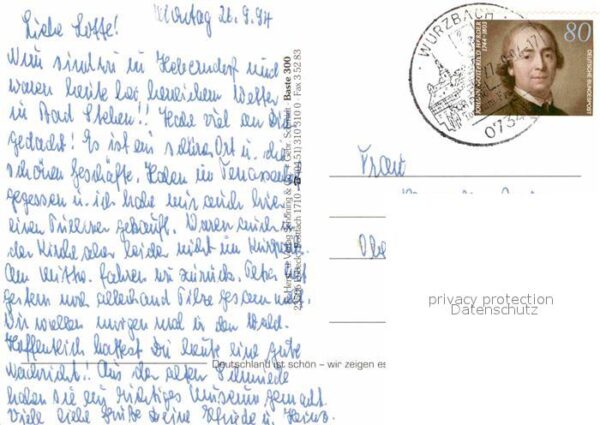 Montag 26.9.94
Liebe Lotte!
Nun sind wir in Heberndorf und
waren heute bei herrlichem Wetter
in Bad Steben!! Habe viel an Dich
gedacht! Es ist ein schöner Ort u. die
schönen Geschäfte. Haben im Terrassen
gegessen u. ich habe mir auch hier
einen Pullover gekauft. Waren auch in
der Kirche aber leider nicht im
Am Mittw. fahren wir zurück. Peter hat
gestern noch allerhand Pilze gesammelt.
Wir wollen morgen noch in den Wald.
Hoffentlich hattest Du heute eine gute
Nachricht!. Aus der alten Schmiede
haben sie ein richtiges Museum gemacht.
Viele liebe Grüße Deine Elfriede u. Heinz.
Baste 300
Fax 3 52 83
Deutschland ist schön – wir zeigen es
WURZBACH
0734
80
JOHANN GOTTFRIED HERDER
1744-1803
DEUTSCHE BUNDESPOST
Frau
privacy protection
Datenschutz